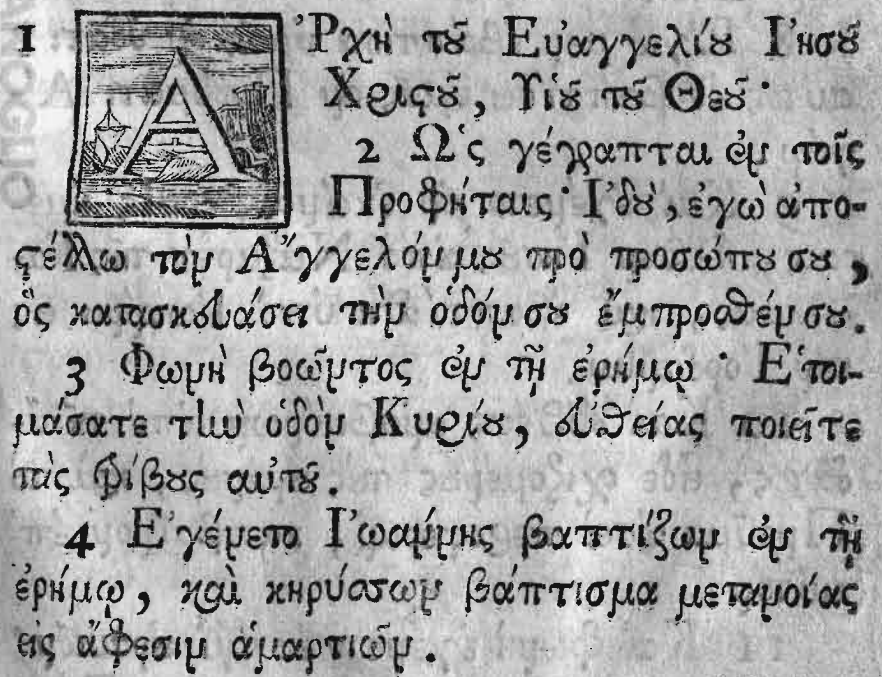 1 ἈΡχὴ τοῦ Εὐαγγελίου Ἰησοῦ
Χριστοῦ, Υἱοῦ τοῦ Θεοῦ·
2 Ὡς γέγραπται ἐν τοῖς
Προφήταις· Ἰδοὺ, ἐγὼ ἀπο-
στέλλω τὸν Ἄγγελόν μου πρὸ προσώπου σου,
ὃς κατασκευάσει τὴν ὁδόν σου ἔμπροσθέν σου.
3 Φωνὴ βοῶντος ἐν τῇ ἐρήμῳ· Ἑτοι-
μάσατε τὴν ὁδὸν Κυρίου, εὐθείας ποιεῖτε
τὰς τρίβους αὐτοῦ.
4 Ἐγένετο Ἰωάννης βαπτίζων ἐν τῇ
ἐρήμῳ, καὶ κηρύσσων βάπτισμα μετανοίας
εἰς ἄφεσιν ἁμαρτιῶν.